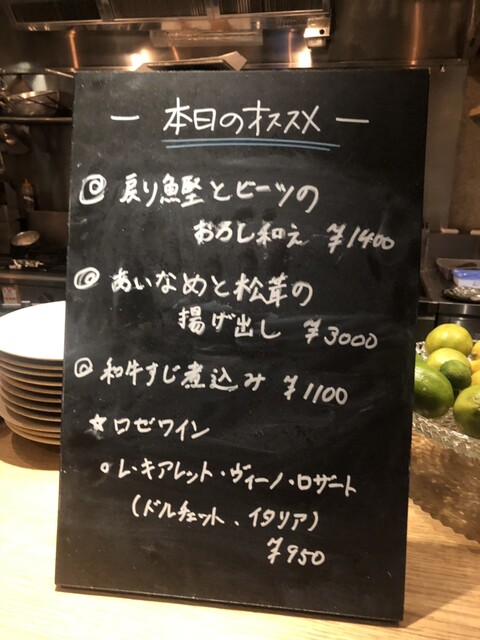 — 本日のオススメ —
◎ 戻り鰹とビーツの
おろし和え ¥1400
◎ あいなめと松茸の
揚げ出し ¥3000
◎ 和牛すじ煮込み ¥1100
☆ ロゼワイン
○ レ・キアレット・ヴィーノ・ロザート
(ドルチェット、イタリア)
¥950